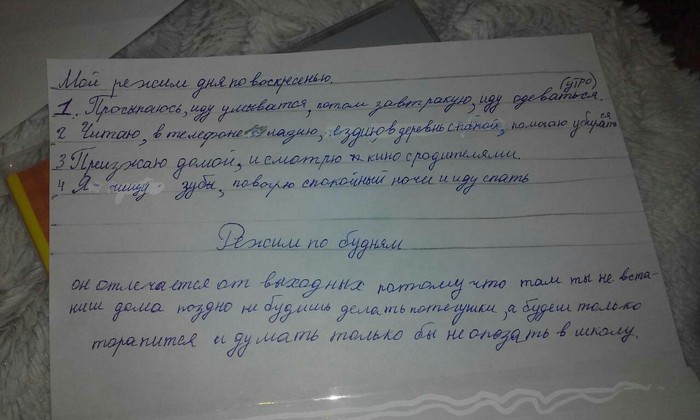 Мой режим дня по воскресенью.
(утро)
1. Просыпаюсь, иду умыватся, потом завтракую, иду одеваться.
2 Читаю, в телефоне лазию, ездию в деревнь с папой, помогаю убиратся
3 Преизжаю домой, и смотрю кино с родителями.
4 Я чищу зубы, повогрю спокойный ночи и иду спать
Режим по будням
он отлечается от выходных потому что там ты не вста-
ниш дома поздно не будишь делать потегушки, а будеш только
торапится и думать только бы не опоздать в школу.